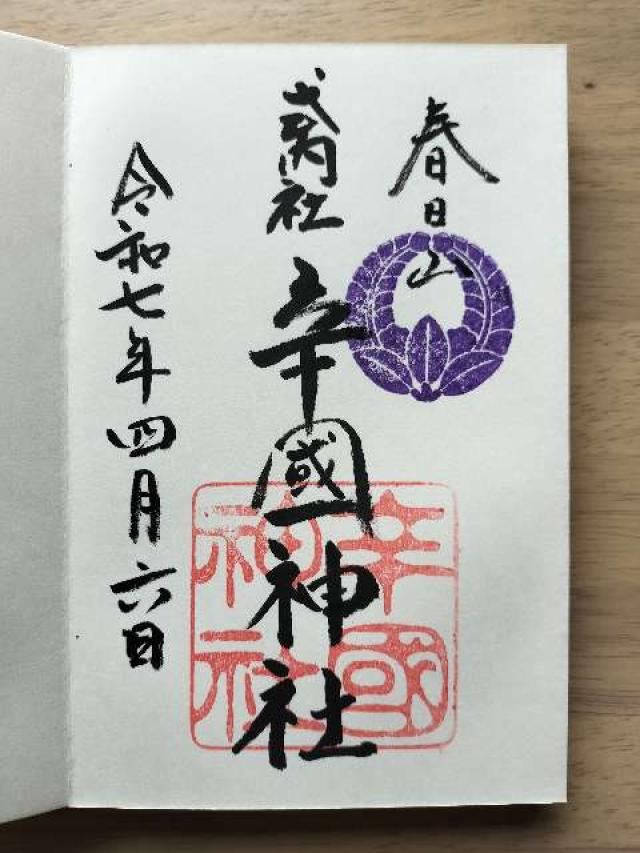 春日山
式内社
辛國神社
令和七年四月六日
辛國
神社